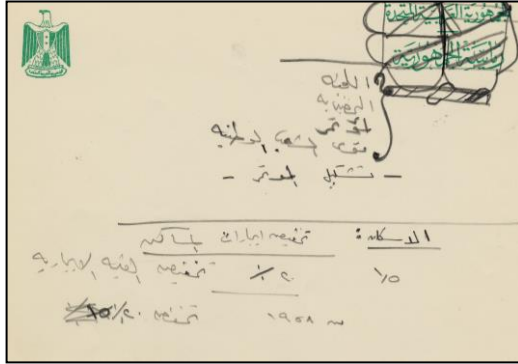 الجمهورية العربية المتحدة
رياسة الجمهورية
اللجنة
التحضيرية
المؤتمر
قوى الشعب الوطنية
- تشكيل المؤتمر -
الاسكان: تخفيض ايجارات المساكن
١٥٪ ٢٠٪ تخفيض القيمة الايجارية
سـ ١٩٥٨ تخفيض ٢٠٪